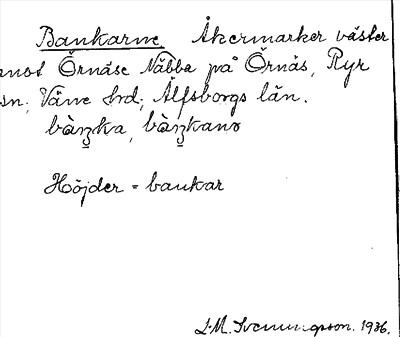 Bankarne. Åkermarker väster
emot Örnäse Näbba på Örnäs, Ryr
sn; Väne hrd; Älfsborgs län.
bàŋka, bàŋkanə
Höjder = bankar
L.M. Svenungsson. 1936.